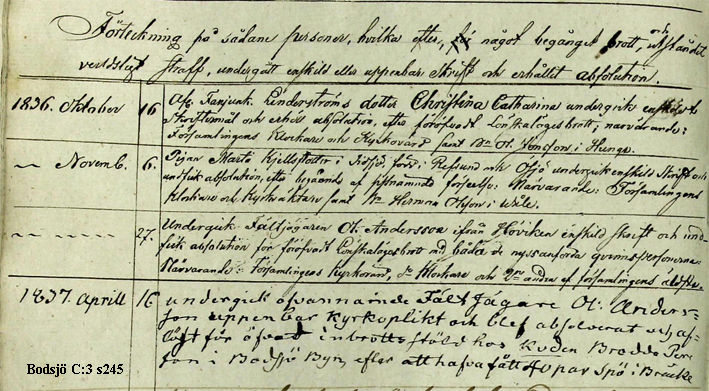 Förteckning på sådane personer, hvilka efter, för något begånget brott, och utståndet
verldsligt straff, undergått enskild eller uppenbar Skrift och erhållit absolution.
1836. Oktober 16 Afs. Fanjunk. Linderströms dotter Christina Catharina undergick enskildt
Skriftemål och erhöll absolution, efter föröfvadt Lönskalägesbrott; närvarande:
Församlingens Klockare och Kyrkovärd samt Ol. Jonsson i Hunge.
— Novemb. 6. Pigan Märta Kjellsdotter i undergick enskild Skrift och
undfick absolution, efter begående af sistnämnde förseelse. Närvarande: Församlingens
Klockare och samt Herman Olsson i Wåle.
— 27. Undergick Fältjägaren Ol. Andersson ifrån Höviken enskild skrift och und-
fick absolution för föröfvadt Lönskalägesbrott med båda de nyssanförda qvinnspersonerna.
Närvarande: Församlingens Kyrkovärd, Klockare och andra af församlingens äldsta.
1837. Aprill 16 undergick ofvannämde Fältjägare Ol: Anders-
son uppenbar kyrkoplikt och blef absolverat och af-
löst för öfvat inbrotts stöld hos Enkan Brodde Pers-
son i Bodsjö Byn, efter att hafva fått 40 par spö i Bräcke
Bodsjö C:3 s245